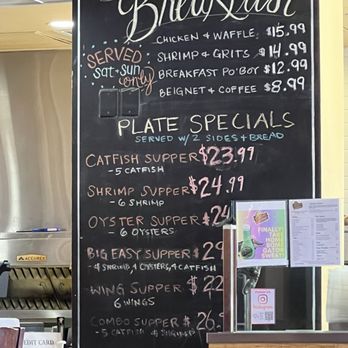 Breakfast
CHICKEN & WAFFLE $15.99
SHRIMP & GRITS $14.99
BREAKFAST PO'BOY $12.99
BEIGNET & COFFEE $8.99
SERVED
sat + sun
only
PLATE SPECIALS
SERVED W/ 2 SIDES + BREAD
CATFISH SUPPER $23.99
- 5 CATFISH
SHRIMP SUPPER $24.99
- 6 SHRIMP
OYSTER SUPPER $24
6 OYSTERS
BIG EASY SUPPER $29
- 4 SHRIMP, 4 OYSTERS, 4 CATFISH
WING SUPPER $22
6 WINGS
COMBO SUPPER $26.
- 5 CATFISH 4 SHRIMP
FINALLY!
TAKE
HOME
BOMB
BATCH
SWEAT!
Instagram
CREDIT CARD